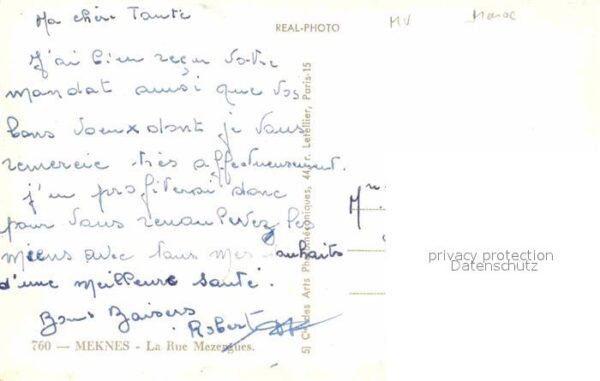 Ma chère Tante
REAL-PHOTO
MV
Maroc
J'ai bien reçu votre
mandat ainsi que vos
bons voeux dont je vous
remercie très affectueusement.
j'en profiterai donc
pour vous renouvelez les
miens avec tous mes souhaits
d'une meilleure santé.
Bons Baisers
Robert
760 — MEKNES - La Rue Mezergues.
5) Cie des Arts Photomécaniques, 44, r. Letellier, Paris-15
privacy protection
Datenschutz